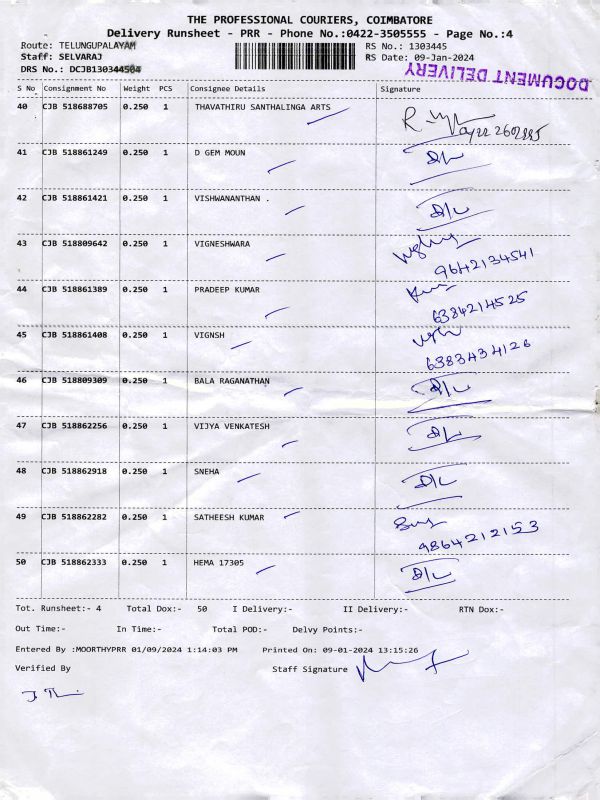 THE PROFESSIONAL COURIERS, COIMBATORE
Delivery Runsheet - PRR - Phone No.:0422-3505555 - Page No.:4
Route: TELUNGUPALAYAM
RS No.: 1303445
Staff: SELVARAJ
RS Date: 09-Jan-2024
DRS No.: DCJB130344504
DOCUMENT DELIVERY
S No Consignment No Weight PCS Consignee Details Signature
40 CJB 518688705 0.250 1 THAVATHIRU SANTHALINGA ARTS
41 CJB 518861249 0.250 1 D GEM MOUN D/L
42 CJB 518861421 0.250 1 VISHWANANTHAN . D/L
43 CJB 518809642 0.250 1 VIGNESHWARA
9642134541
44 CJB 518861389 0.250 1 PRADEEP KUMAR
6384214525
45 CJB 518861408 0.250 1 VIGNSH
6383434126
46 CJB 518809309 0.250 1 BALA RAGANATHAN D/L
47 CJB 518862256 0.250 1 VIJYA VENKATESH D/L
48 CJB 518862918 0.250 1 SNEHA D/L
49 CJB 518862282 0.250 1 SATHEESH KUMAR
9864212153
50 CJB 518862333 0.250 1 HEMA 17305 D/L
Tot. Runsheet:- 4 Total Dox:- 50 I Delivery:- II Delivery:- RTN Dox:-
Out Time:- In Time:- Total POD:- Delvy Points:-
Entered By :MOORTHYPRR 01/09/2024 1:14:03 PM Printed On: 09-01-2024 13:15:26
Verified By Staff Signature